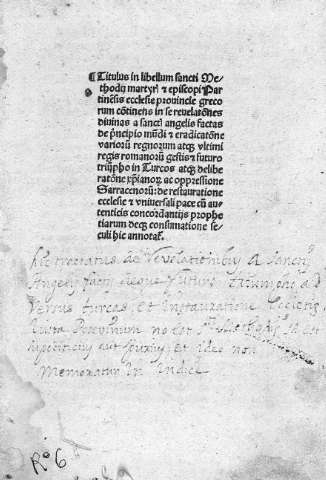 ¶ Titulus in libellum sancti Me⸗
thodij martyrꝭ ⁊ episcopi Par
tinẽsis ecclesie prouincie greco
rum cõtinẽs in se reuelatõnes
diuinas a sanctꝭ angelis factas
de pͥncipio mũdi ⁊ eradicatõne
varioꝝ regnorum atqꝫ vltimi
regis romanoꝝ gestis ⁊ futuro
triũpho in Turcos atqꝫ delibe
ratõne xp̃ianoꝝ ac oppressione
Sarracenoꝝ: de restauratione
ecclesie ⁊ vniuersali pace cũ au⸗
tenticis concordantijs prophe
tiarum deqꝫ consumatione se⸗
culi hic annotat᷑.
hic tractatus de Revelationibus A Sanctis
Angelis factis deque futuro triumpho ad
versus turcas, et Instauratione Ecclesie
iuxta Posevinum no est Sti Methodij sed est
et ideo non
Memoratur In Indice
Ro 6